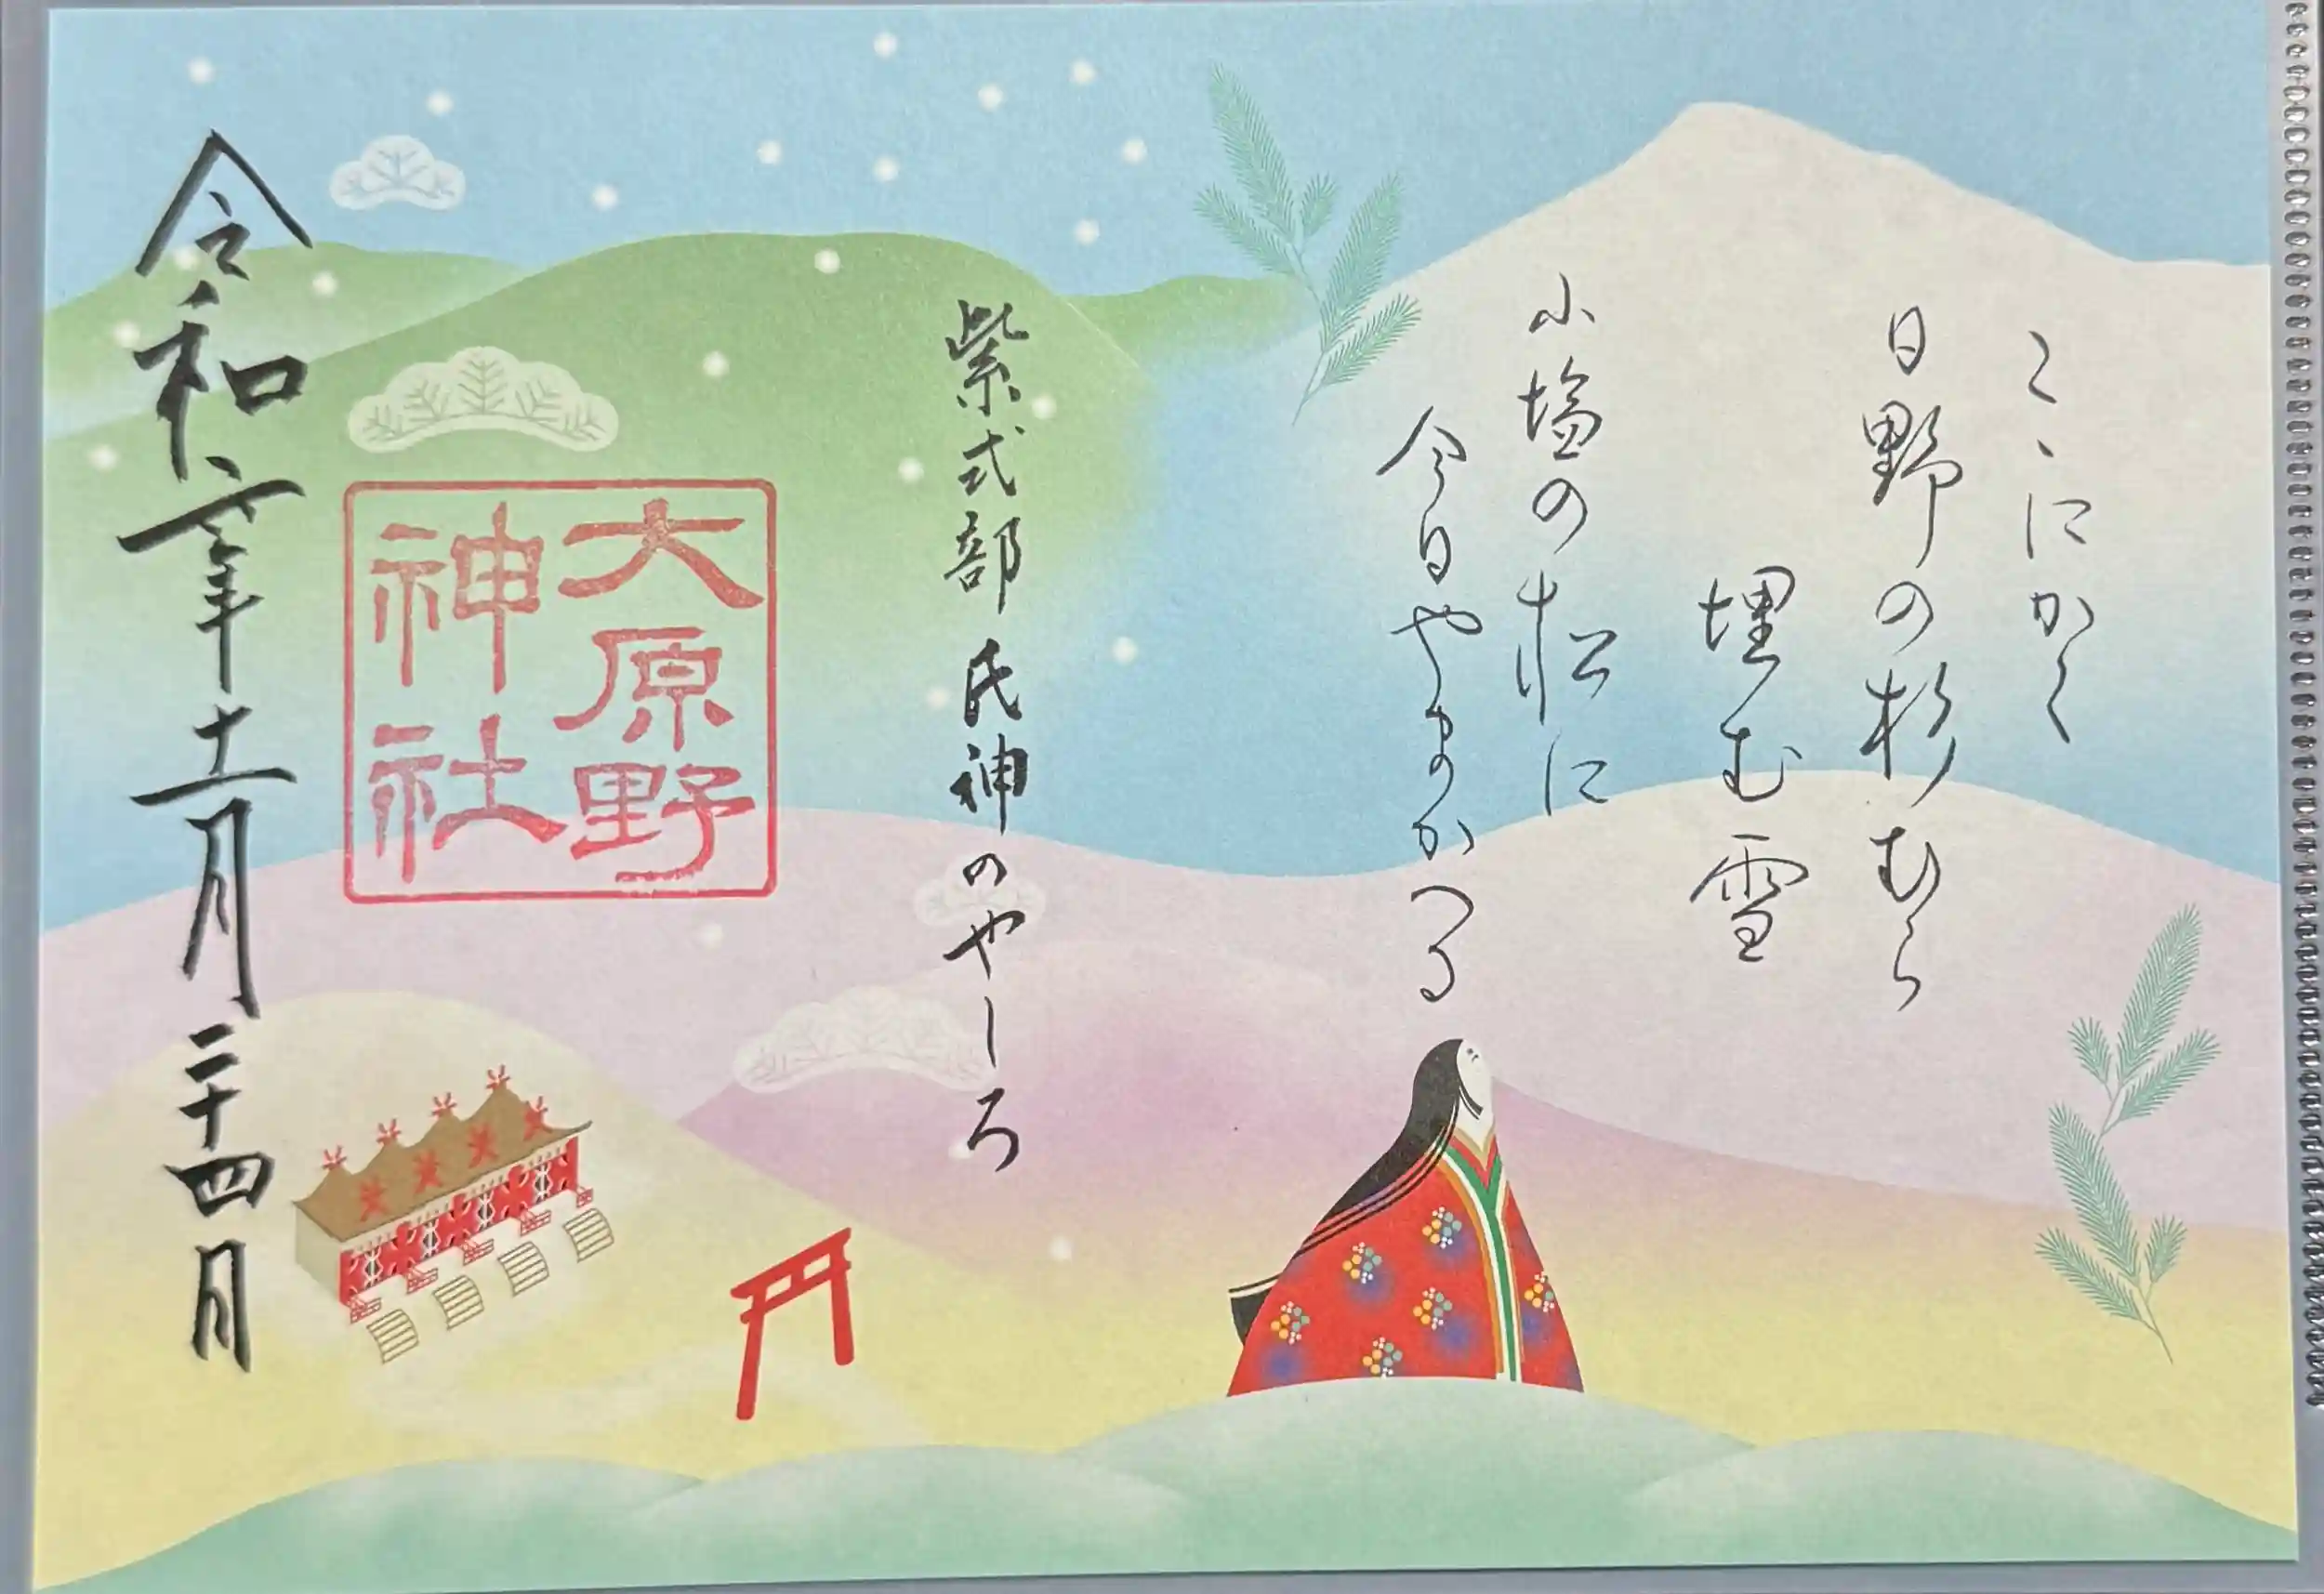 ここにかく
日野の杉むら
埋む雪
小塩の松に
今日やまかへる
紫式部 氏神のやしろ
大原野
神社
令和六年十一月二十四日